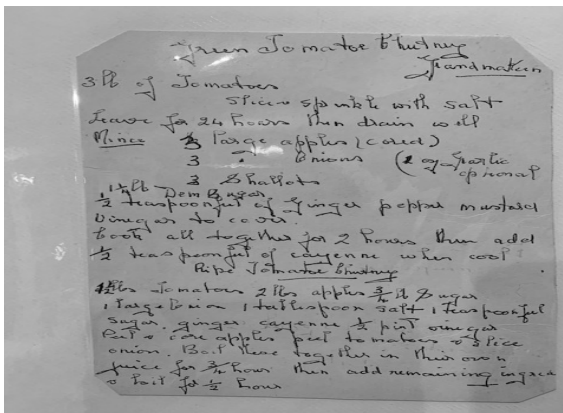 Green Tomatoe Chutney
Grandma
3 lb of Tomatoes
Slice & sprinkle with salt
Leave for 24 hours then drain well
Mince 3 large apples (cored)
3 " Onions ( of garlic
optional
3 Shallots
lb Dem Sugar
½ teaspoonful of ginger pepper mustard
Vinegar to cover.
Cook all together for 2 hours then add
½ teaspoonful of cayenne when cool
Ripe Tomatoe Chutney
lbs Tomatoes 2 lbs apples ¾ lb Sugar
1 large Onion 1 tablespoon salt 1 teaspoonful
sugar. ginger. cayenne ½ pint vinegar
Peel & core apples peel tomatoes & slice
onion. Boil these together in their own
juice for ¾ hour then add remaining
& boil for ½ hour